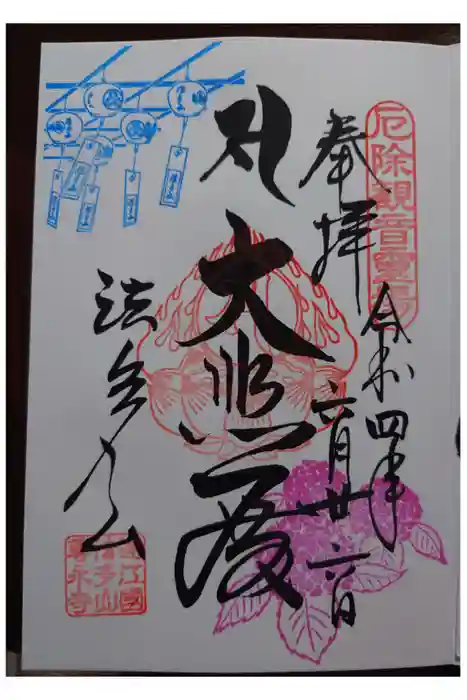 厄除觀音霊場
奉拝
令和四年
六月廿六日
大悲殿
法多山
遠江國
法多山
尊永寺